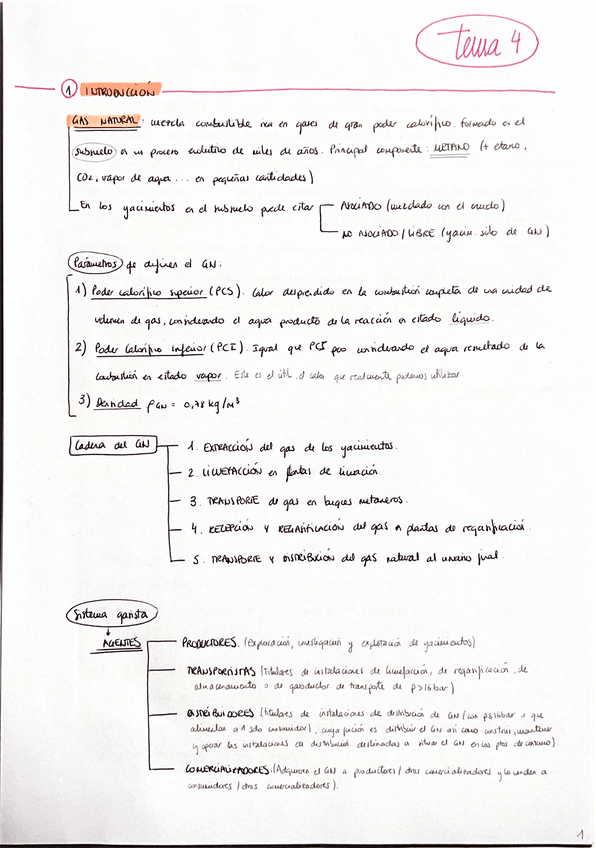 Tema 4
1 INTRODUCCIÓN
GAS NATURAL: mezcla combustible rica en gases de gran poder calorífico. formado en el
subsuelo en un proceso evolutivo de miles de años. Principal componente: METANO (+ etano,
CO2, vapor de agua ... en pequeñas cantidades)
En los yacimientos en el subsuelo puede estar
ASOCIADO (mezclado con el crudo)
NO ASOCIADO / LIBRE (yacim. sólo de GN)
Parámetros q definen el GN:
1) Poder calorífico superior (PCS). Calor desprendido en la combustión completa de una unidad de
volumen de gas, considerando el agua producto de la reacción en estado líquido.
2) Poder Calorífico inferior (PCI). Igual que PCI pero considerando el agua resultado de la
combustión en estado vapor. Este es el útil, el calor que realmente podemos utilizar
3) Densidad ρGN = 0,78 kg/m³
Cadena del GN
1. EXTRACCIÓN del gas de los yacimientos.
2. LICUEFACCIÓN en plantas de licuación.
3. TRANSPORTE de gas en buques metaneros.
4. RECEPCIÓN Y REGASIFICACIÓN del gas en plantas de regasificación.
5. TRANSPORTE Y DISTRIBUCIÓN del gas natural al usuario final.
Sistema gasista
AGENTES
PRODUCTORES. (Exploración, investigación y explotación de yacimientos)
TRANSPORTISTAS (Titulares de instalaciones de licuefacción, de regasificación, de
almacenamiento o de gasoductos de transporte de p>16bar)
DISTRIBUIDORES (titulares de instalaciones de distribución de GN (con p≤16bar o que
alimentan a 1 sólo consumidor), cuya función es distribuir el GN así como construir, mantener
y operar las instalaciones de distribución destinadas a situar el GN en los ptos de consumo).
COMERCIALIZADORES. (Adquieren el GN a productores / otros comercializadores y lo venden a
consumidores / otros comercializadores).
1